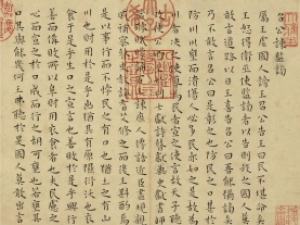 召公諫監謗
厲王虐國人謗王召公告王曰民不堪命矣
王怒得衛巫使監謗者以告則殺之國人莫
敢言道路以目王喜告召公曰吾能弭謗矣
乃不敢言召公曰是鄣之也防民之口甚於
防川川壅而潰傷人必多民亦如之是故為
川者決之使導為民者宣之使言故天子聽
政使公卿至於列士獻詩瞽獻典史獻書師
箴瞍賦矇誦百工諫庶人傳語近臣盡規親
戚補察瞽史教誨耆艾修之而後王斟酌焉
是以事行而不悖民之有口也猶土之有山
川也財用於是乎出猶其有原隰衍沃也衣
食於是乎生口之宣言也善敗於是乎興行
善而備敗所以阜財用衣食者也夫民慮之
於心而宣之於口成而行之胡可壅也若壅其
口其與能幾何王弗聽於是國人莫敢出言